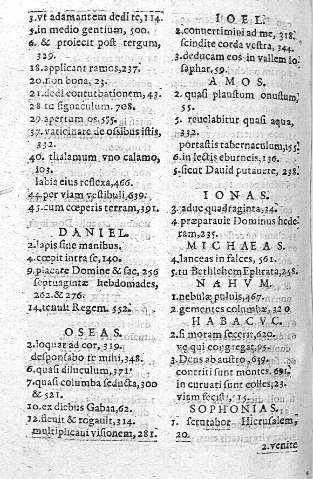 3. vt adamantem dedi te, 114.
5. in medio gentium, 500.
6. & proiecit post tergum,
329.
18. applicant ramos, 237.
20. non bona, 23.
21. dedi conturbationem, 43.
28. tu signaculum. 708.
29. apertum os, 555.
37. vaticinare de ossibus istis,
332.
40. thalamum vno calamo,
103.
labia eius reflexa, 466.
44. per viam vestibuli, 639.
45. cum cœperis terram, 391.
DANIEL.
2. lapis sine manibus.
4. cœpit intra se, 140.
9. placare Domine & fac, 256
septuaginta hebdomades,
262. & 276.
14. tenuit Regem. 552.
OSEAS.
2. loquar ad cor, 319.
desponsabo te mihi, 348.
6. quasi diluculum, 371.
7. quasi columba seducta, 300
& 521.
10. ex diebus Gabaa, 62.
12. fleuit & rogauit, 314.
multiplicaui visionem, 281.
IOEL.
2. conuertimini ad me, 318.
scindite corda vestra, 344.
3. deducam eos in vallem io
saphat, 59.
AMOS.
2. quasi plaustum onustum,
55.
5. reuelabitur quasi aqua,
332.
portastis tabernaculum, 155
6. in lectis eburneis, 136.
5. sicut Dauid putauere, 238.
IONAS.
3. adhuc quadraginta, 14.
4. præparauit Dominus hede
ram, 235.
MICHAEAS.
4. lanceas in falces, 561.
5. tu Bethlehem Ephrata, 258.
NAHVM.
1. nebulæ puluis, 467.
2. gementes columbæ, 320
HABACVC.
2. si moram fecerit, 620.
væ qui congregat, 95.
3. Deus ab austro, 659.
contriti sunt montes. 691.
in curuati sunt colles; 23.
viam fecisti, 15.
SOPHONIAS.
1. scrutabor Hierusalem,
20.
2. venite